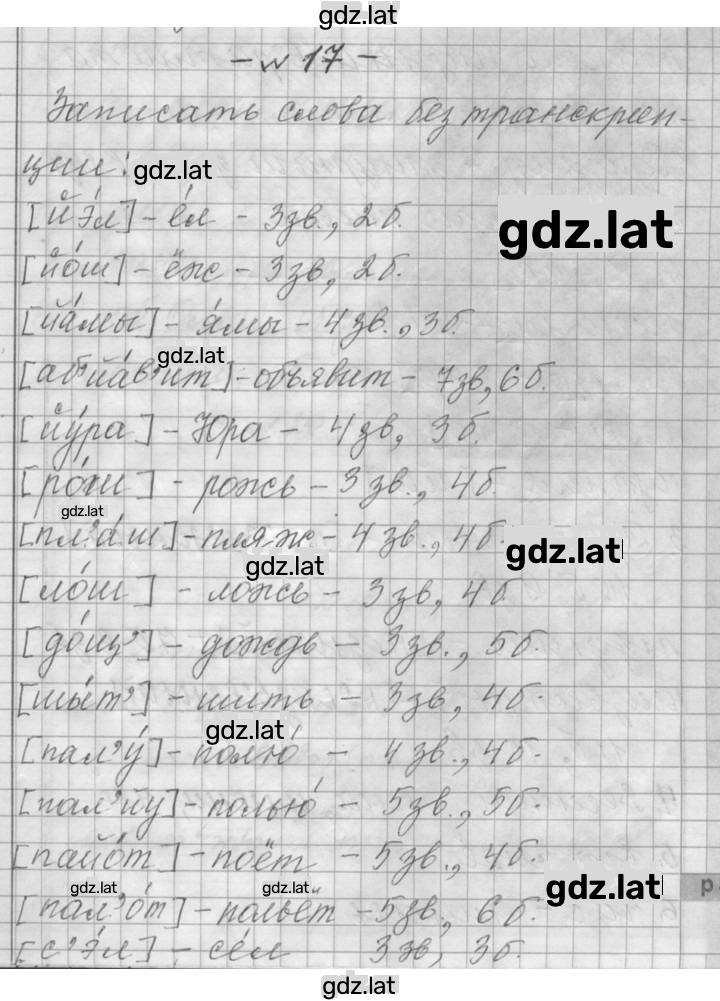 gdz.lat
- № 17 -
Записать слова без транскрип-
ции: gdz.lat
[йэ́л] - е́л - 3зв., 2б.
gdz.lat
[йо́ш] - ёж - 3зв, 2б.
[йа́мы] - я́мы - 4зв., 3б.
gdz.lat
[аб'йа́в'ит] - объявит - 7зв, 6б.
[йу́ра] - Юра - 4зв, 3б.
[ро́ш] - рожь - 3зв., 4б.
gdz.lat
[пл'а́ш] - пляж - 4зв., 4б.
gdz.lat
gdz.lat
[ло́ш] - ложь - 3зв, 4б
[до́щ'] - дождь - 3зв., 5б.
[шы́т'] - шить - 3зв, 4б.
gdz.lat
[пал'у́] - полю́ - 4зв., 4б.
[пал'йу] - полью́ - 5зв., 5б.
[пайо́т] - поёт - 5зв., 4б.
gdz.lat gdz.lat gdz.lat
р
[пал'о́т] - польёт - 5зв, 6б.
[с'э́л] - се́л 3зв, 3б.
gdz.lat